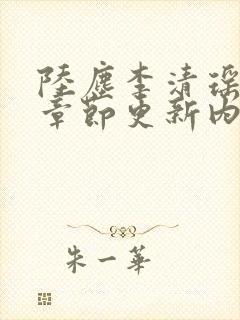 陸塵李清瑤
章節更新內
朱一華